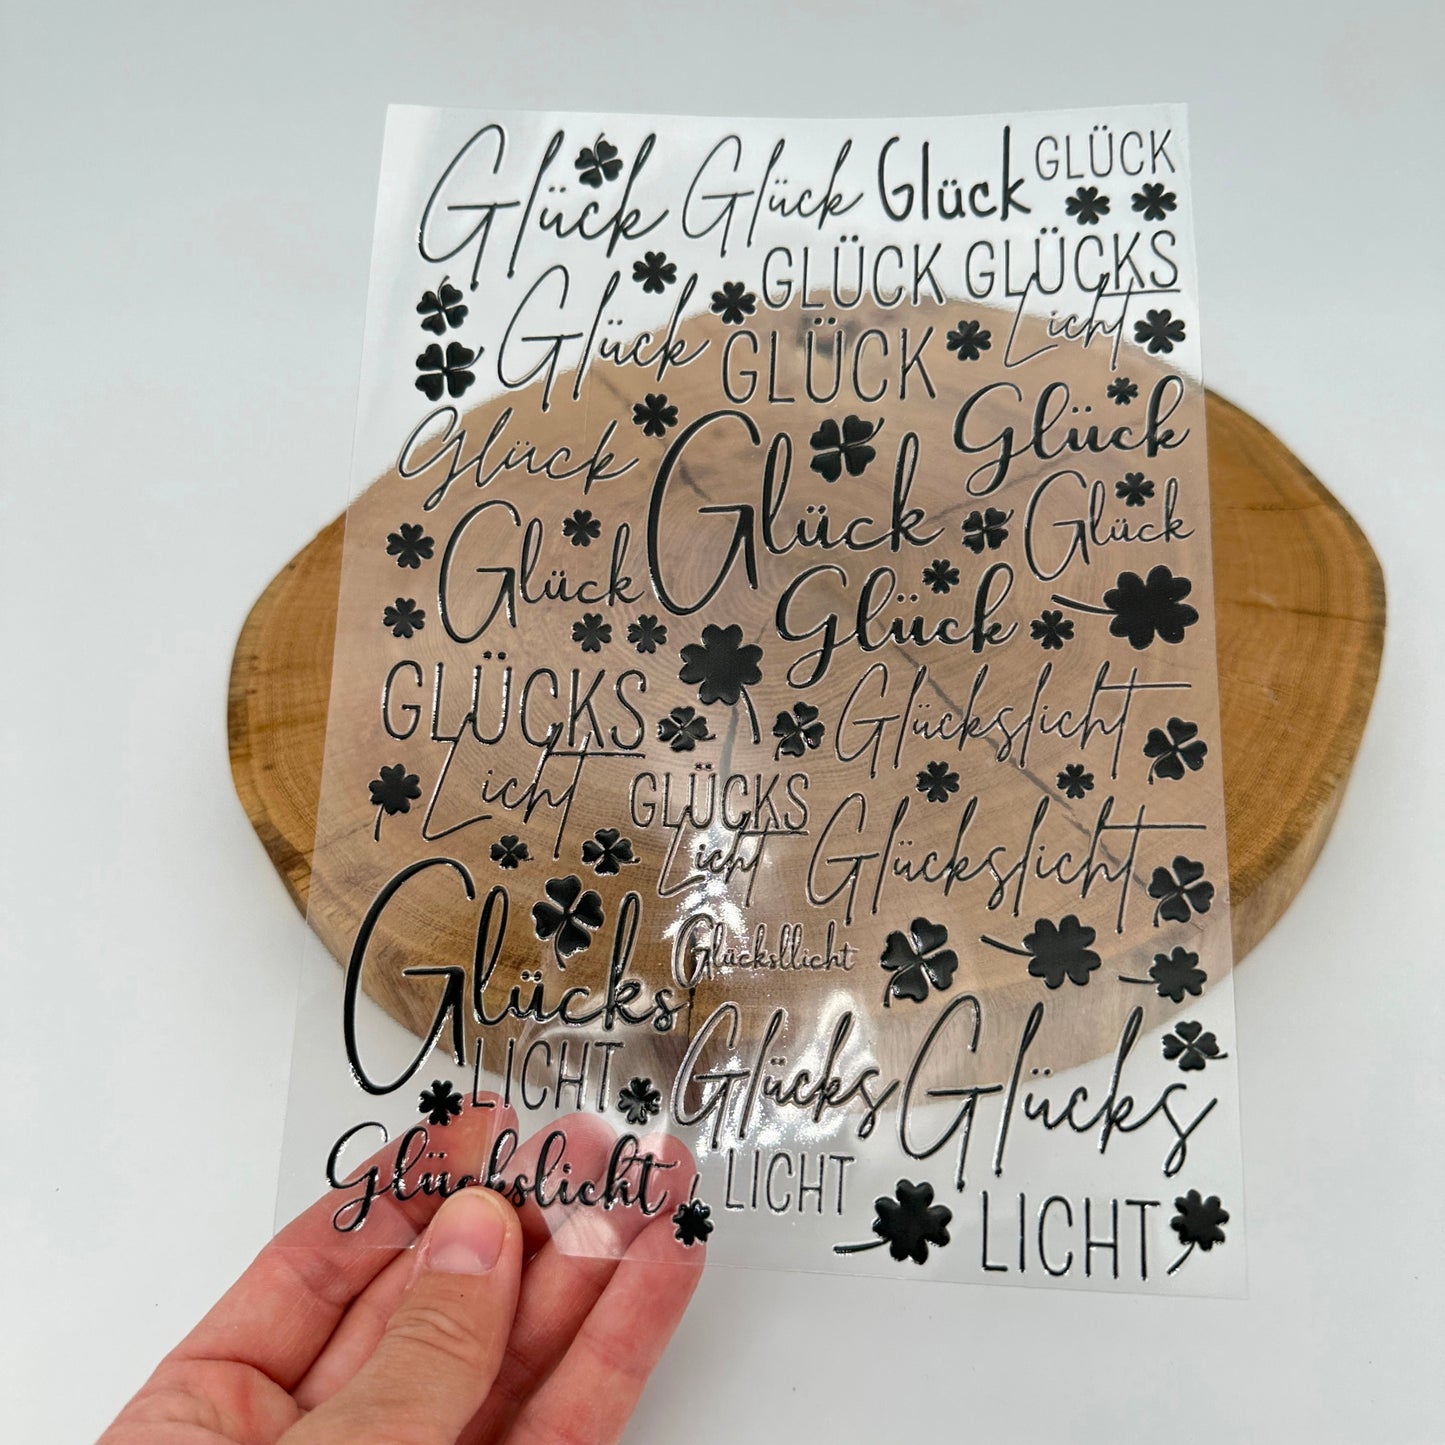 Glück Glück Glück GLÜCK
GLÜCK GLÜCKS
Glück
Licht
GLÜCK
Glück
Glück
Glück
Glück
Glück
Glück
GLÜCKS
Glückslicht
Licht
GLÜCKS
Licht
Glückslicht
Glücks
Glücksllicht
LICHT
Glücks
Glücks
Glückslicht
LICHT
LICHT